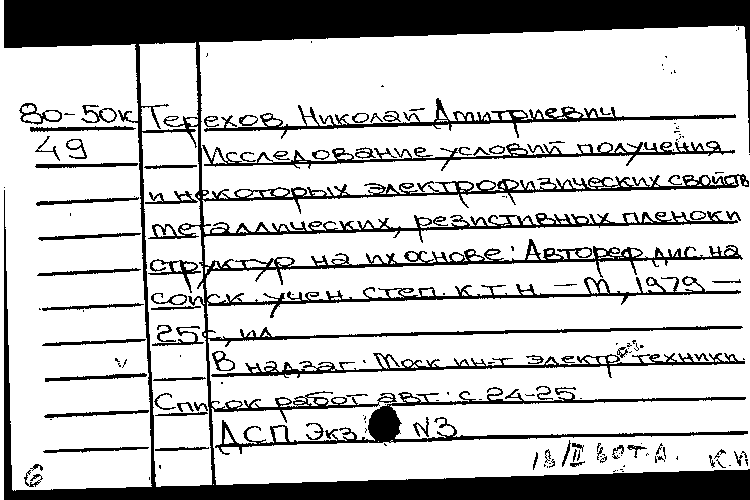 80-50к Терехов, Николай Дмитриевич
49 Исследование условий получения
и некоторых электрофизических свойств
металлических, резистивных пленок и
структур на их основе: Автореф. дис. на
соиск. учен. степ. к.т.н. – М., 1979 –
25с., ил
В надзаг.: Моск ин-т электр. техники.
Список работ авт.: с. 24-25
ДСП. Экз. N3
18/II
6